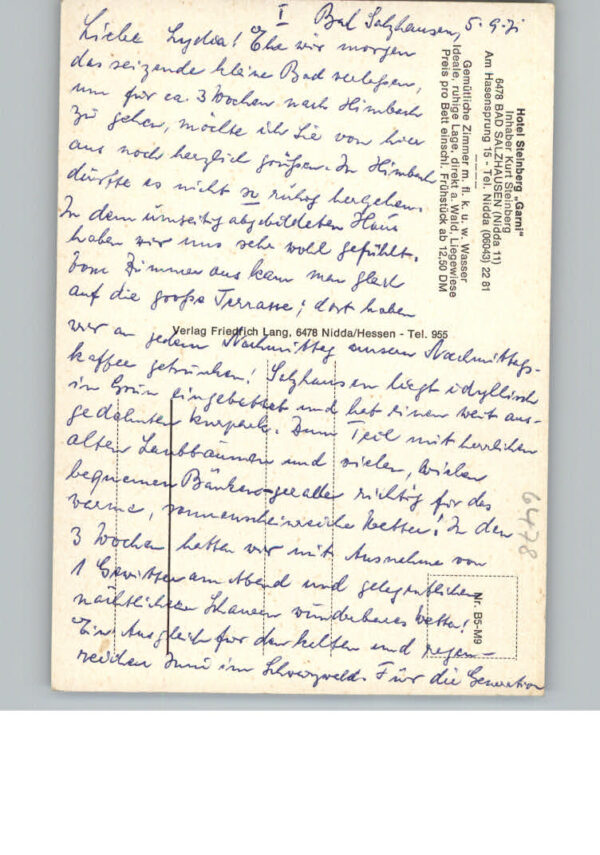 I
Bad Salzhausen, 5.9.71
Liebe Lydia! Ehe wir morgen
das reizende kleine Bad verlassen,
um für ca. 3 Wochen nach Himbach
zu gehen, möchte ich Sie von hier
aus noch herzlich grüßen. In Himbach
dürfte es nicht so ruhig hergehen.
In dem umseitig abgebildeten Haus
haben wir uns sehr wohl gefühlt.
Vom Zimmer aus kam man gleich
auf die große Terrasse; dort haben
wir an jedem Nachmittag unsern Nachmittags-
kaffee getrunken! Salzhausen liegt idyllisch
in Grün eingebettet und hat einen weit aus-
gedehnten Kurpark. Zum Teil mit herrlichen
alten Laubbäumen und vielen, vielen
bequemen Bänken - alles richtig für das
warme, sonnenscheinreiche Wetter! In den
3 Wochen hatten wir mit Ausnahme von
1 Gewitter am Abend und gelegentlichen
nächtlichen Schauern wunderbares Wetter!
Ein Ausgleich für den kalten und regen-
reichen Juni im Schwarzwald. Für die Generation
Hotel Steinberg „Garni“
Inhaber Kurt Steinberg
6478 BAD SALZHAUSEN (Nidda 11)
Am Hasensprung 15 - Tel. Nidda (06043) 22 81
Gemütliche Zimmer m. fl. k. u. w. Wasser
Ideale, ruhige Lage, direkt a. Wald, Liegewiese
Preis pro Bett einschl. Frühstück ab 12,50 DM
Verlag Friedrich Lang, 6478 Nidda/Hessen - Tel. 955
6478
Nr. B5-M9